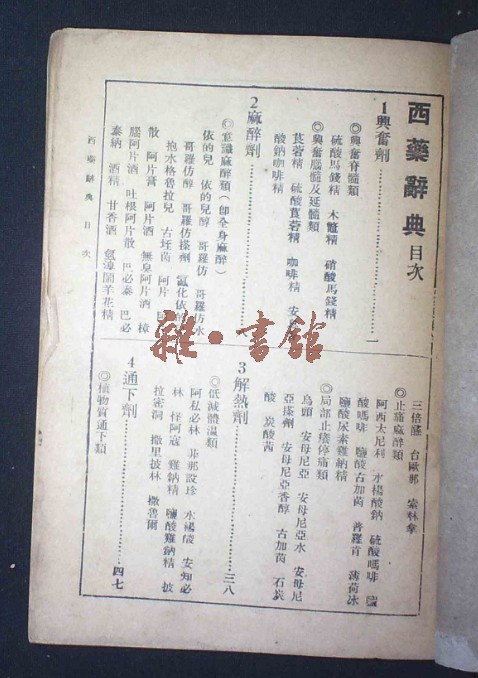 西藥辭典目次
1 興奮劑……一
◎興奮脊髓類
硫酸馬錢精 木鼈精 硝酸馬錢精
◎興奮腦髓及延髓類
莨菪精 硫酸莨菪精 咖啡精 安
酸鈉咖啡精
2 麻醉劑
◎意識麻醉類（即全身麻醉）
依的兒 依的兒醇 哥羅仿 哥羅仿水
哥羅仿醇 哥羅仿搽劑 氯化依
抱水格魯拉兒 古坯茵 阿片
散 阿片膏 阿片酒 無臭阿片酒 樟
腦阿片酒 吐根阿片散 巴必泰 巴必
泰納 酒精 甘香酒 氫溴鬧羊花精
三倍盛 台歐那 索林拿
◎止痛麻醉類
阿西太尼利 水楊酸鈉 硫酸嗎啡 鹽
酸嗎啡 鹽酸古加茵 普羅肯 薄荷冰
鹽酸尿素雞納精
◎局部止癢停痛類
烏頭 安母尼亞 安母尼亞水 安母尼
亞搽劑 安母尼亞香醇 古加茵 石炭
酸 炭酸茜
3 解熱劑……三八
◎低減體溫類
阿私必林 非那設珍 水楊酸 安知必
林 怪阿寇 雞鈉精 鹽酸雞鈉精 披
拉密洞 撒里披林 撒魯爾
4 通下劑……四七
◎植物質通下類
西藥辭典 目次
雜·書館